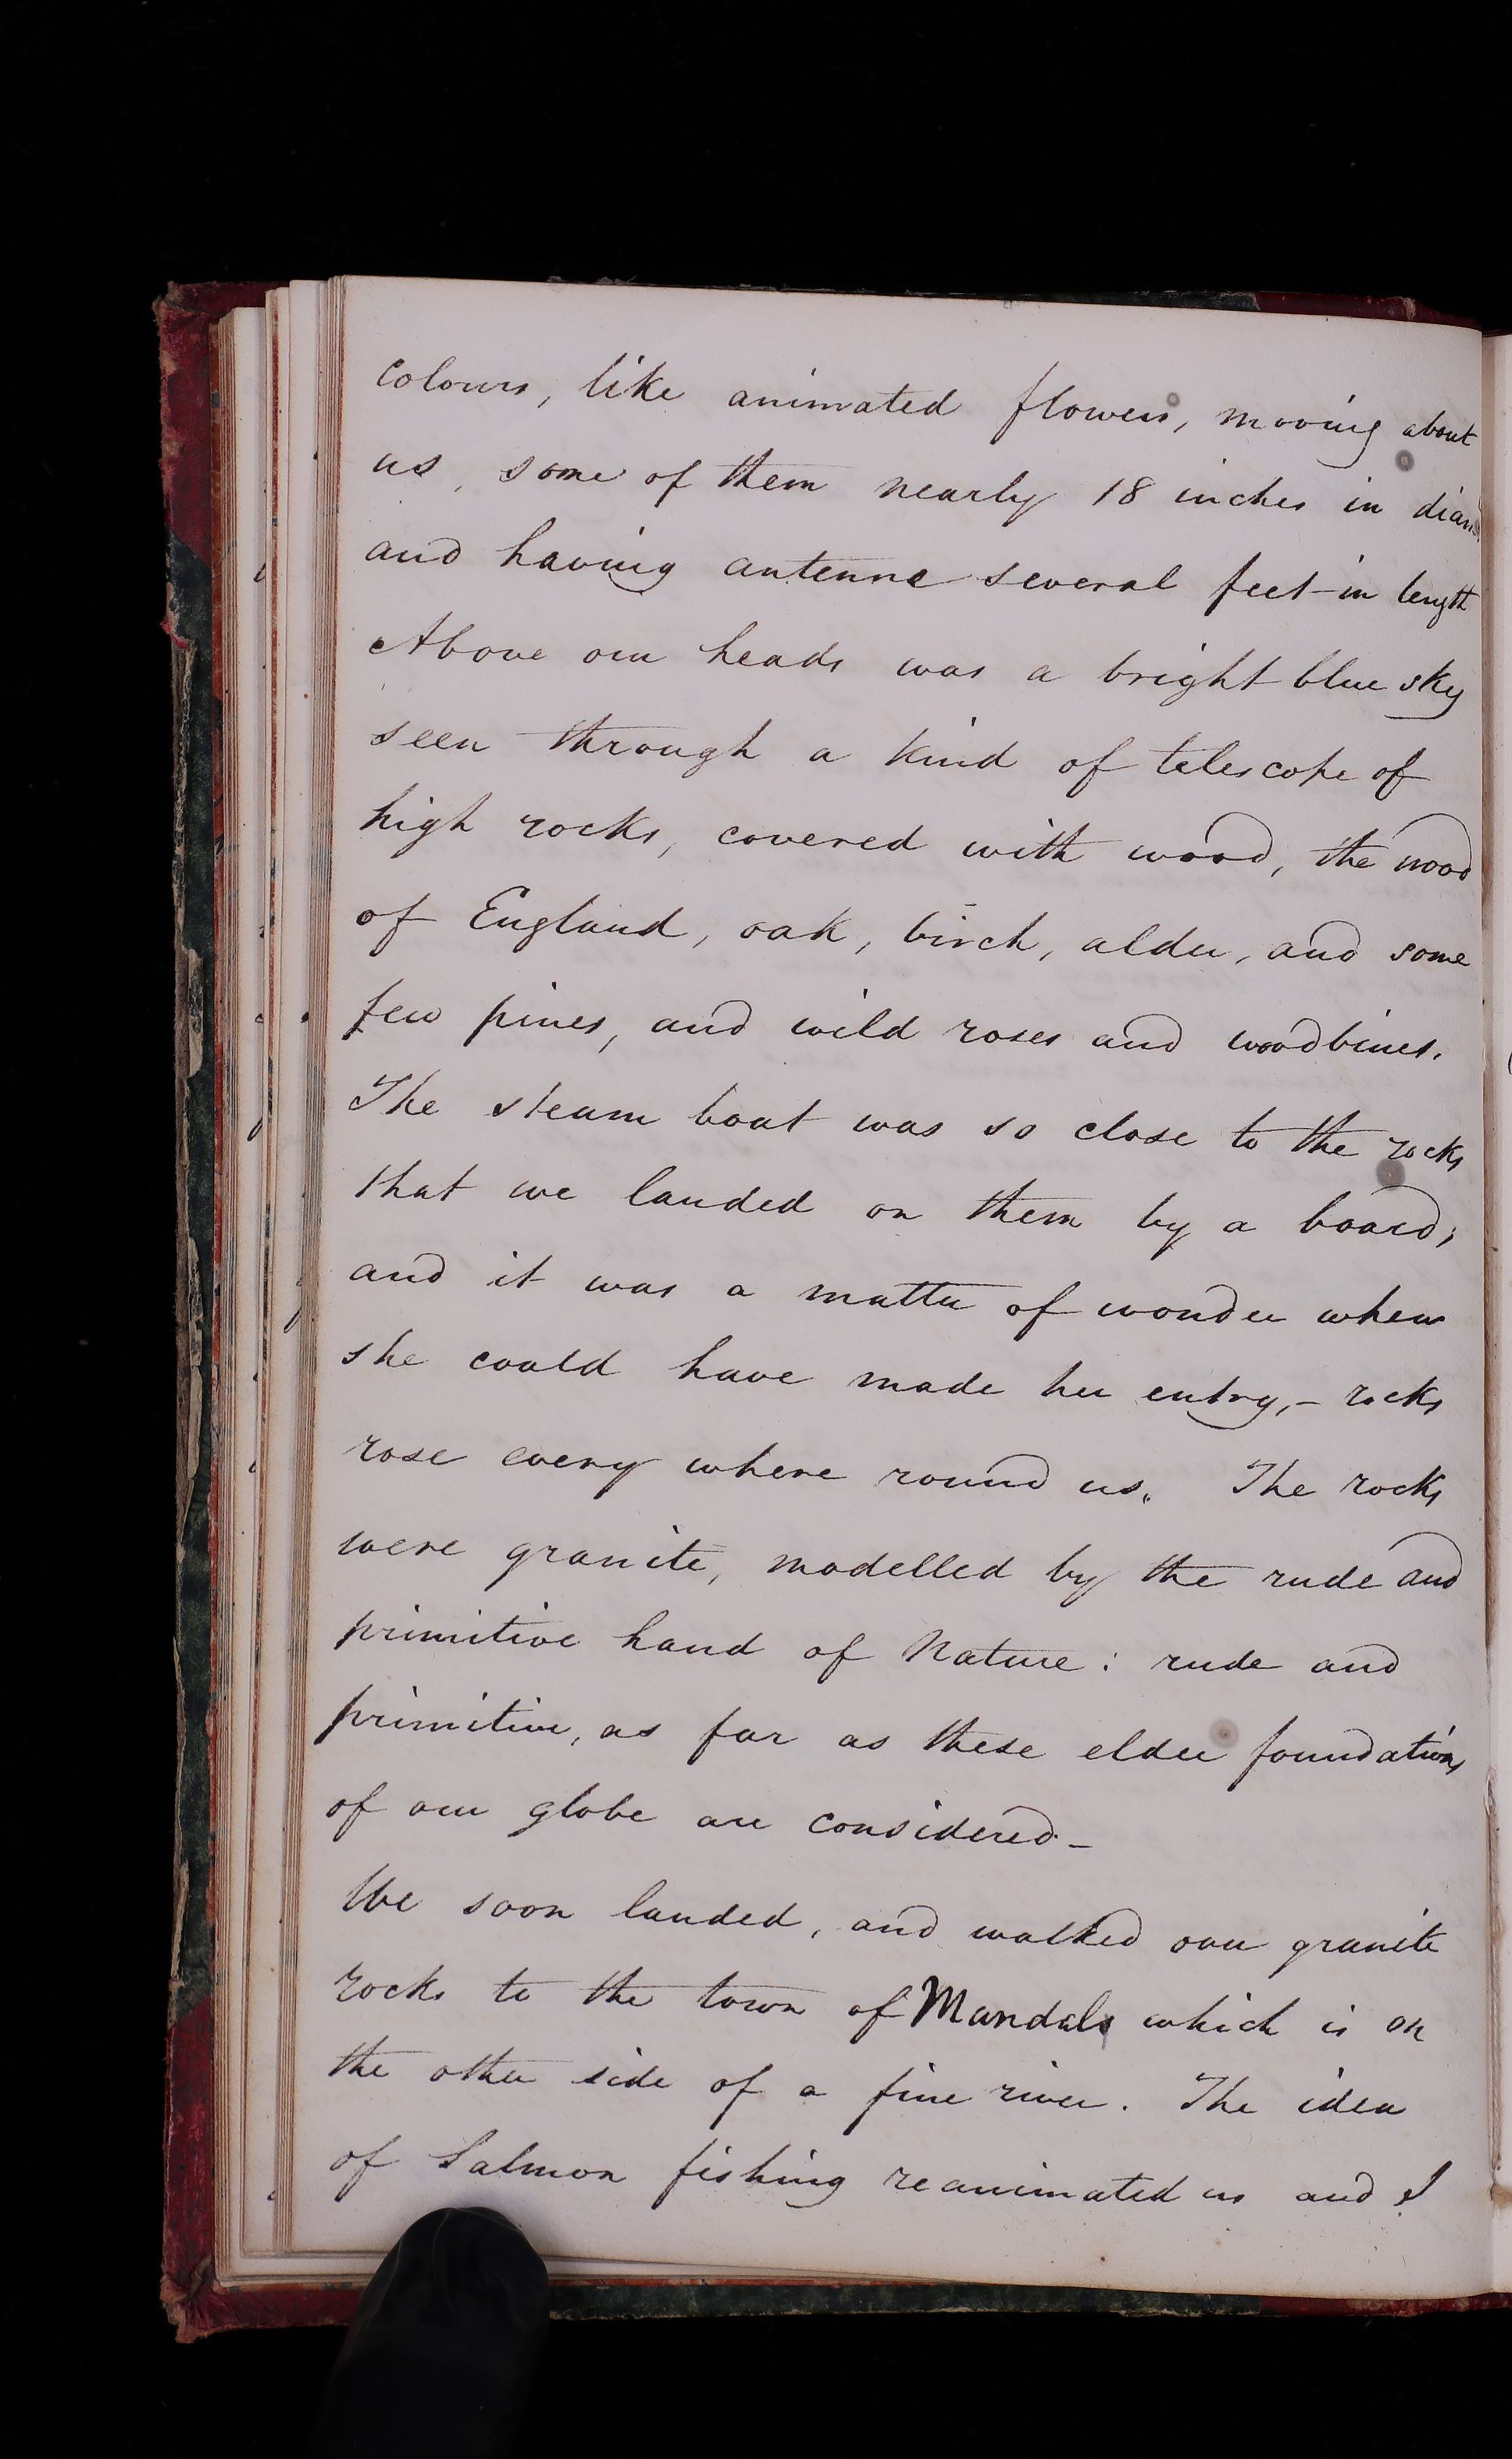 colours, like animated flowers, moving about
us, some of them nearly 18 inches in diam
and having antenne several feet in length
Above our heads was a bright blue sky
seen through a kind of telescope of
high rocks, covered with wood, the wood
of England, oak, birch, alder, and some
few pines, and wild roses and woodbines.
The steam boat was so close to the rocks
that we landed on them by a board;
and it was a matter of wonder where
she could have made her entry,– rocks
rose every where round us. The rocks
were granite, modelled by the rude and
primitive hand of Nature: rude and
primitive, as far as these elder foundations
of our globe are considered–
We soon landed, and walked over granite
rocks to the town of Mandals which is on
the other side of a fine river. The idea
of Salmon fishing reanimated us and I